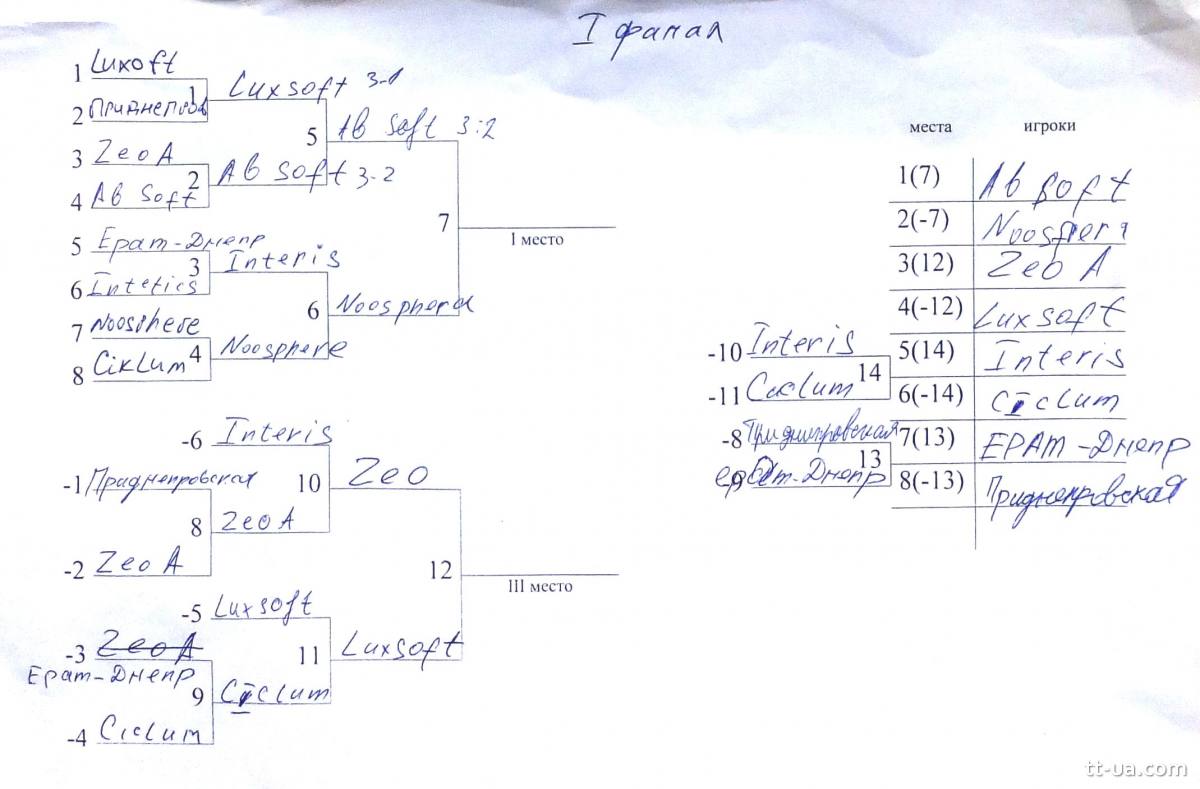 I финал
1 Luxoft
1 Luxsoft 3-1
2 Приднепров
5 Ab Soft 3:2
3 Zeo A
2 Ab Soft 3-2
4 Ab Soft
7
I место
5 Ерат-Днепр
3 Interis
6 Intetics
6 Noosphera
7 Noosphere
4 Noosphere
8 Ciklum
места игроки
1(7) Ab Soft
2(-7)
3(12) Zeo A
4(-12) Luxsoft
5(14) Interis
6(-14) Ciclum
7(13) ЕРАМ-Днепр
8(-13) Приднепровская
-10 Interis
14
-11 Ciclum
-8 Приднепровская
13
Ерат-Днепр
-6 Interis
10 Zeo
-1 Приднепровская
8 Zeo A
-2 Zeo A
12
III место
-5 Luxsoft
11 Luxsoft
-3 Zeo A
Ерат-Днепр
9 Ciclum
-4 Ciclum
tt-ua.com